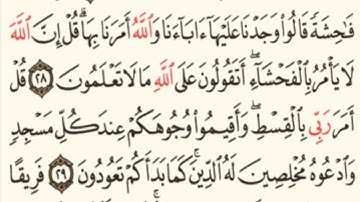 فَٰحِشَةً قَالُوا۟ وَجَدْنَا عَلَيْهَآ ءَابَآءَنَا وَٱللَّهُ أَمَرَنَا بِهَا ۗ قُلْ إِنَّ ٱللَّهَ
لَا يَأْمُرُ بِٱلْفَحْشَآءِ ۖ أَتَقُولُونَ عَلَى ٱللَّهِ مَا لَا تَعْلَمُونَ ٢٨ قُلْ
أَمَرَ رَبِّى بِٱلْقِسْطِ ۖ وَأَقِيمُوا۟ وُجُوهَكُمْ عِندَ كُلِّ مَسْجِدٍ
وَٱدْعُوهُ مُخْلِصِينَ لَهُ ٱلدِّينَ ۚ كَمَا بَدَأَكُمْ تَعُودُونَ ٢٩ فَرِيقًا